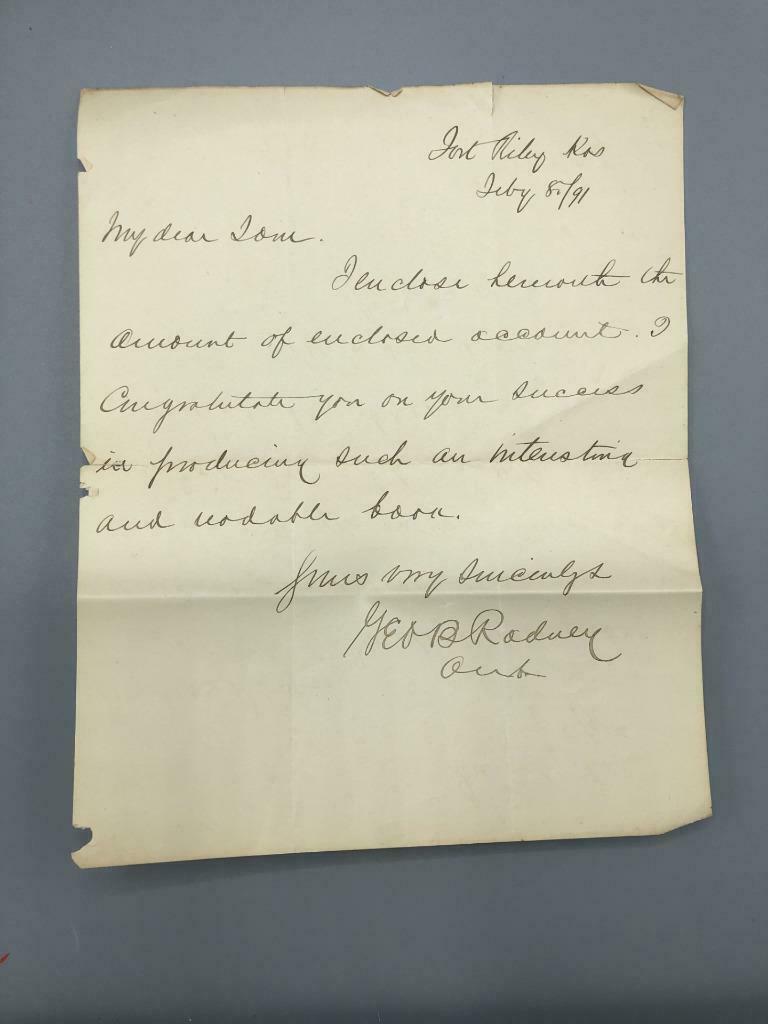 Fort Riley Kas
Feby 8/91
My dear Tom.
I enclose herewith the
amount of enclosed account. I
Congratulate you on your success
in producing such an interesting
and readable book.
Yours very sincerely
Geo B Rodney